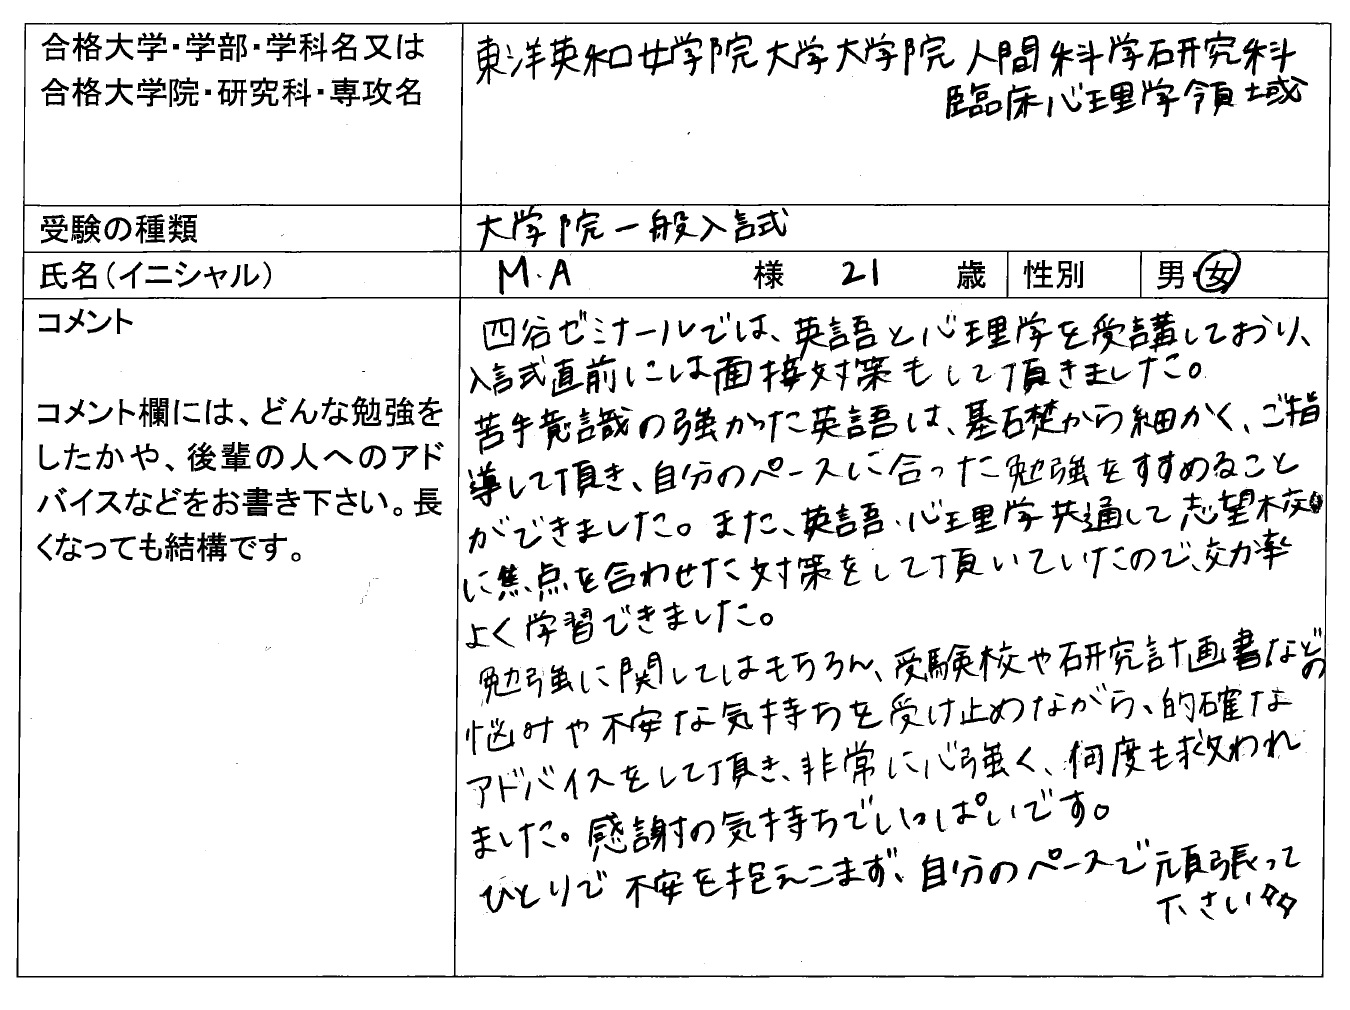 合格大学・学部・学科名又は
合格大学院・研究科・専攻名
東洋英和女学院大学大学院 人間科学研究科
臨床心理学領域
受験の種類
大学院一般入試
氏名(イニシャル)
M.A 様 21 歳 性別 男・女
コメント
コメント欄には、どんな勉強を
したかや、後輩の人へのアド
バイスなどをお書き下さい。長
くなっても結構です。
四谷ゼミナールでは、英語と心理学を受講しており、
入試直前には面接対策もして頂きました。
苦手意識の強かった英語は、基礎から細かく、ご指
導して頂き、自分のペースに合った勉強をすすめること
ができました。また、英語・心理学共通して志望校
に焦点を合わせた対策をして頂いていたので、効率
よく学習できました。
勉強に関してはもちろん、受験校や研究計画書などの
悩みや不安な気持ちを受け止めながら、的確な
アドバイスをして頂き、非常に心強く、何度も救われ
ました。感謝の気持ちでいっぱいです。
ひとりで不安を抱えこまず、自分のペースで頑張って
下さい